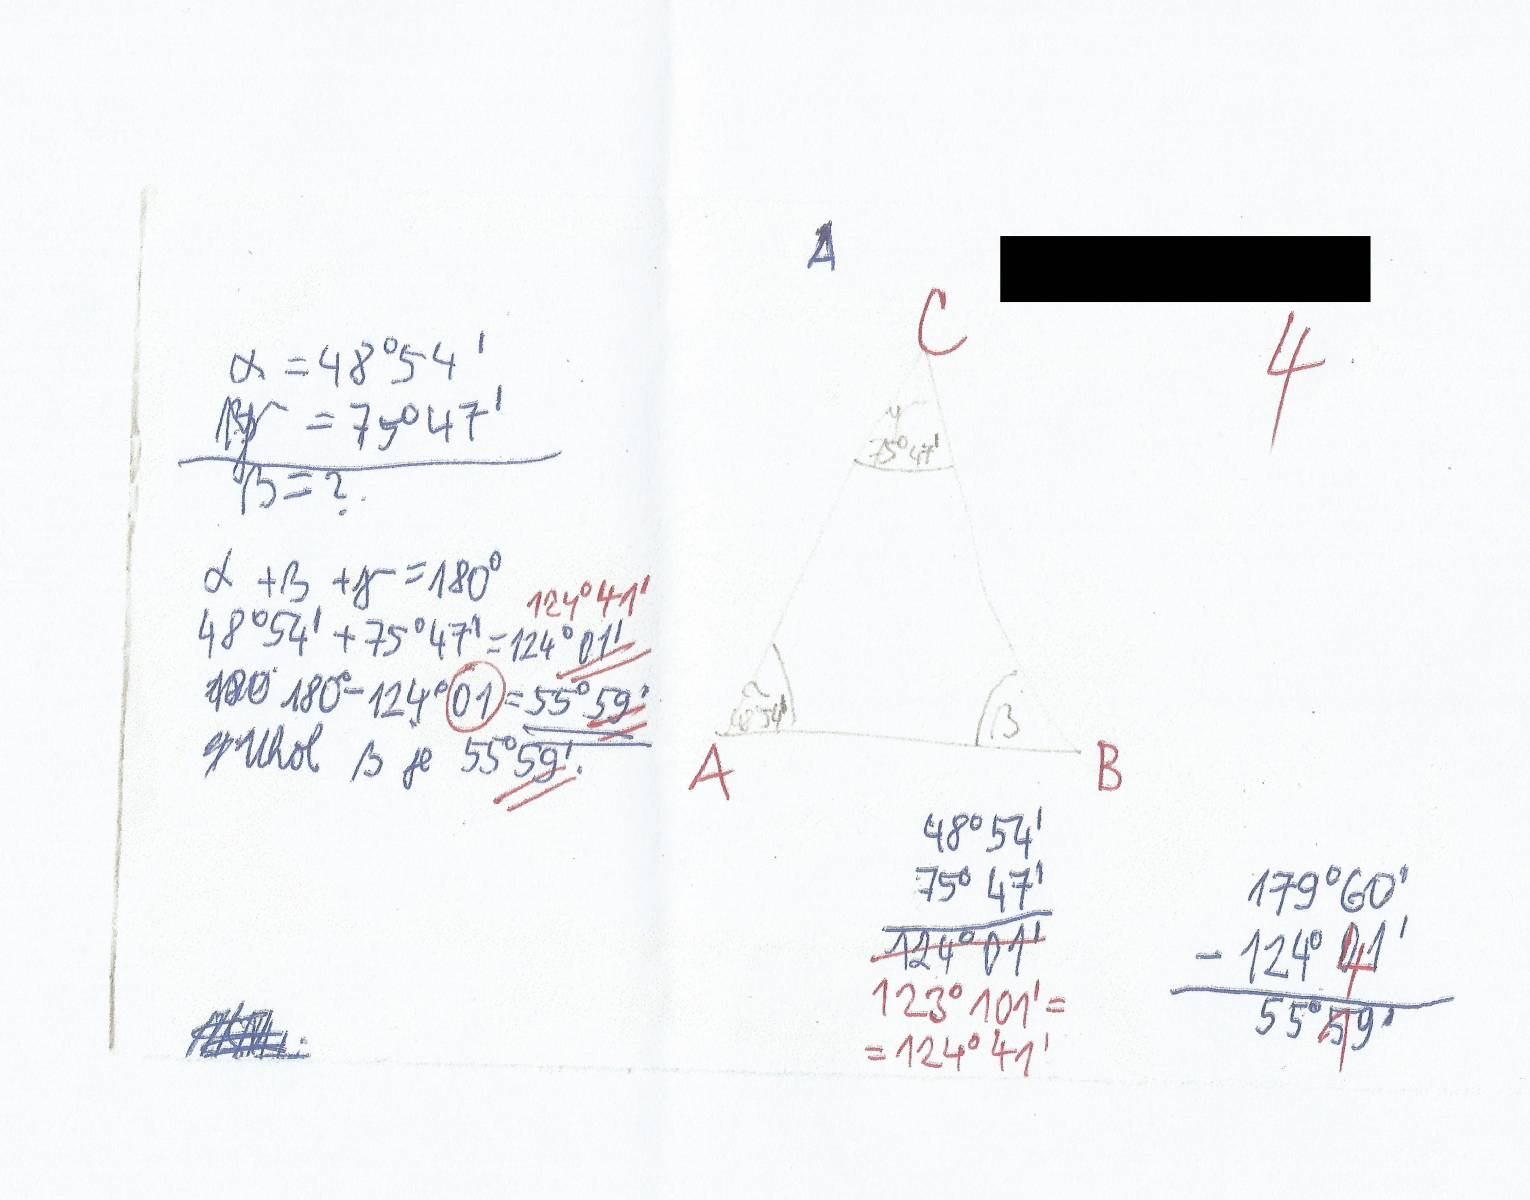 A
C
4
α = 48°54'
γ = 75°47'
β = ?
γ
75°47'
α + β + γ = 180°
124°41'
48°54' + 75°47' = 124°01'
180° - 124°01 = 55°59'
Uhol β je 55°59'.
α
48°54'
β
A
B
48°54'
75°47'
124°01'
123°101' =
= 124°41'
179°60'
- 124°41'
55°59'